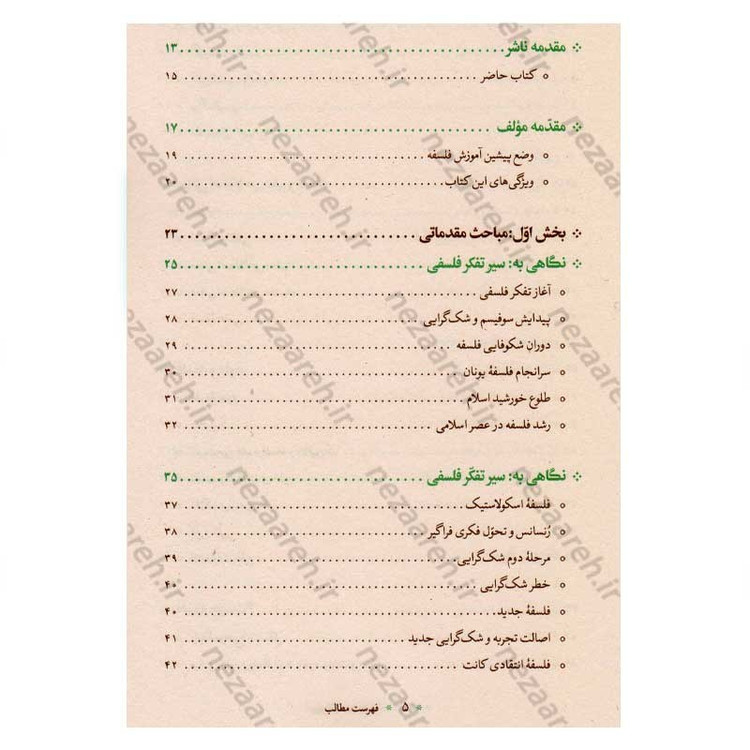 مقدمه ناشر ۱۳
کتاب حاضر ۱۵
مقدّمه مؤلف ۱۷
وضع پیشین آموزش فلسفه ۱۹
ویژگی‌های این کتاب ۲۰
بخش اوّل: مباحث مقدماتی ۲۳
نگاهی به: سیر تفکر فلسفی ۲۵
آغاز تفکر فلسفی ۲۷
پیدایش سوفیسم و شک‌گرایی ۲۸
دوران شکوفایی فلسفه ۲۹
سرانجام فلسفهٔ یونان ۳۰
طلوع خورشید اسلام ۳۱
رشد فلسفه در عصر اسلامی ۳۲
نگاهی به: سیر تفکّر فلسفی ۳۵
فلسفهٔ اسکولاستیک ۳۷
رُنسانس و تحوّل فکری فراگیر ۳۸
مرحلهٔ دوم شک‌گرایی ۳۹
خطر شک‌گرایی ۴۰
فلسفهٔ جدید ۴۰
اصالت تجربه و شک‌گرایی جدید ۴۱
فلسفهٔ انتقادی کانت ۴۲
۵ فهرست مطالب
nezaareh.ir